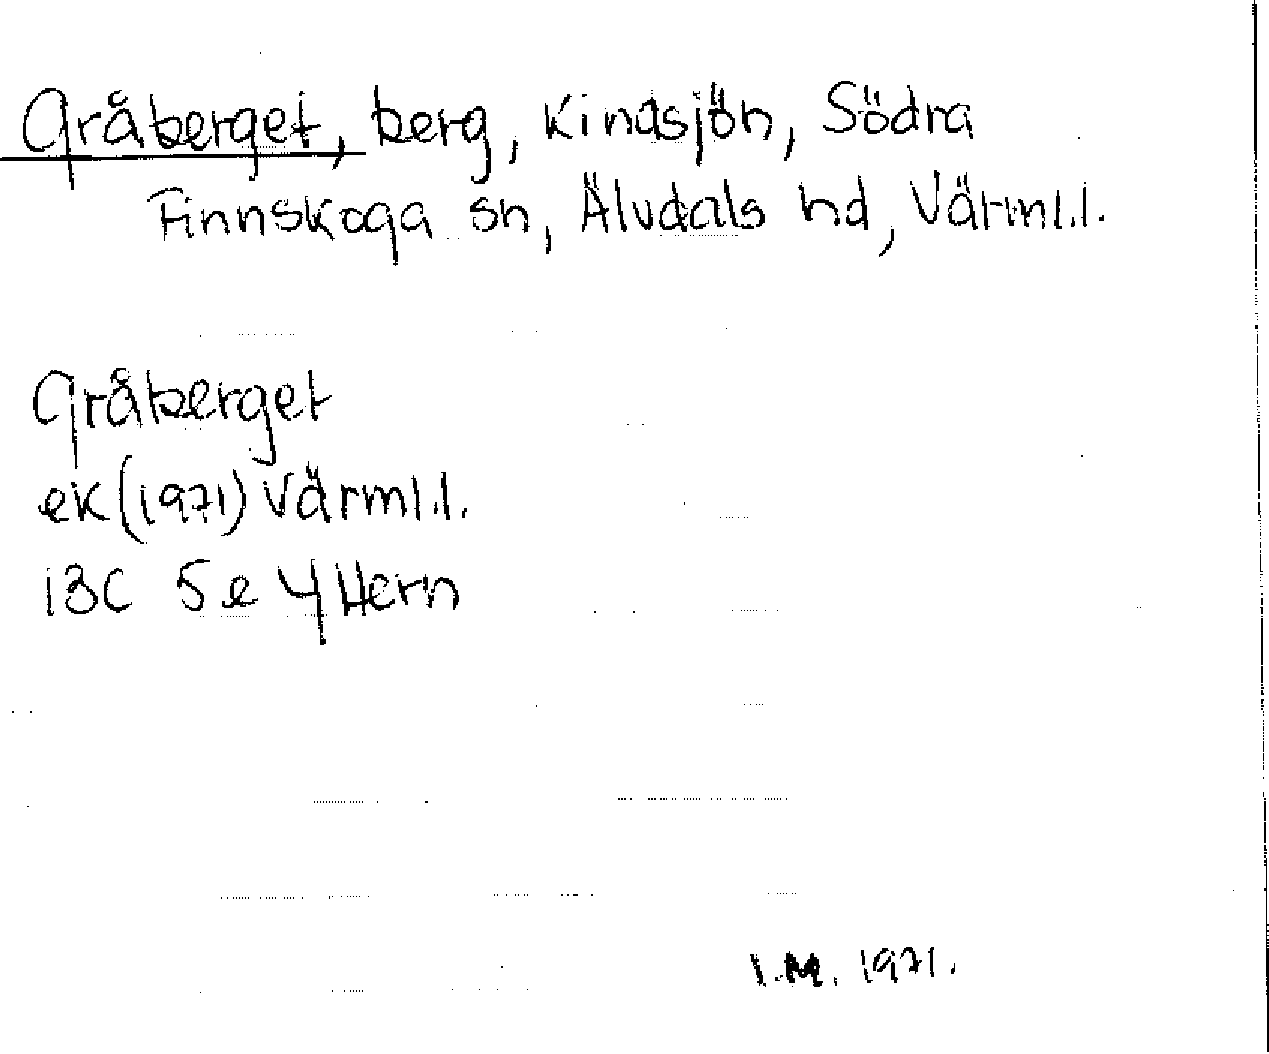 Gråberget, berg, Kindsjön, Södra
Finnskoga sn, Älvdals hd, Värml.l.
Gråberget
ek (1971) Värml.l.
13C 5e 4 Hern
I.M. 1971.